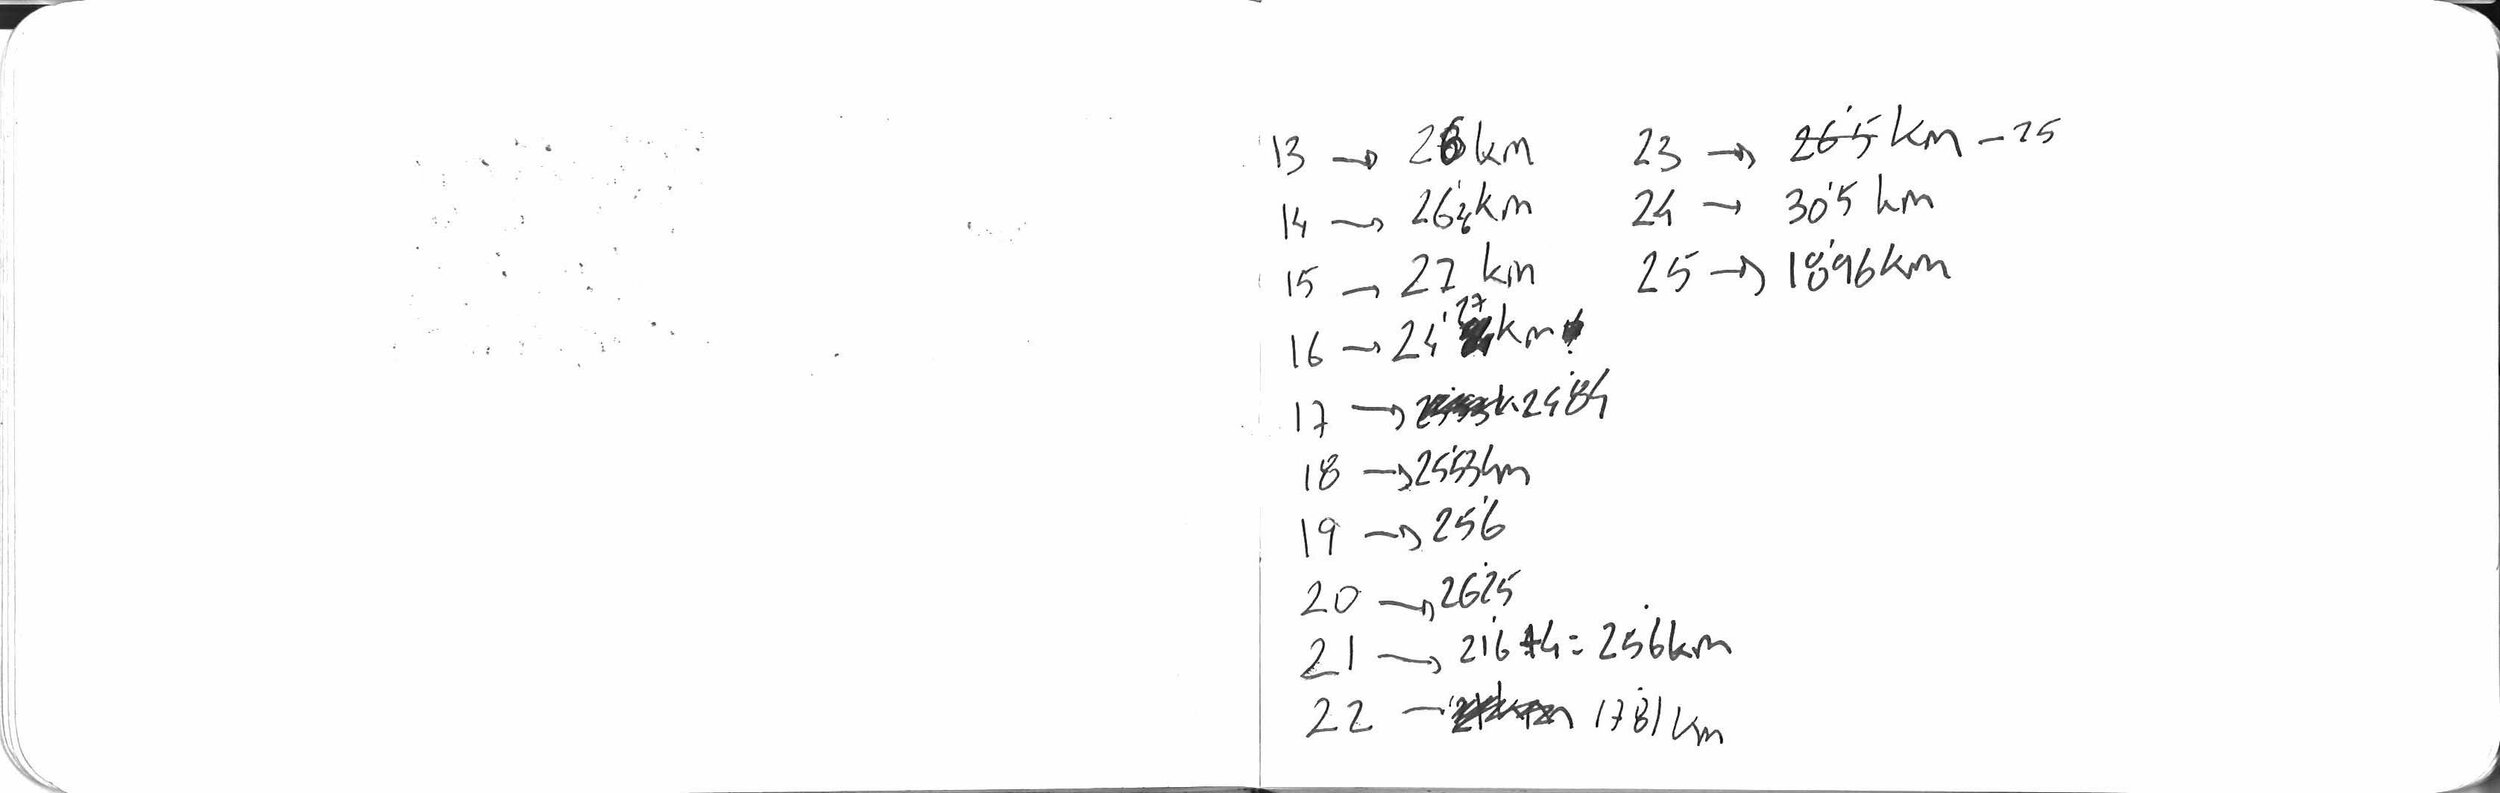 13 → 26 km
14 → 26'26 km
15 → 27 km
16 → 24'27 km
17 → 24'84
18 → 25'53 km
19 → 25'6
20 → 26'25
21 → 21'6 + 4 = 25'6 km
22 → 17'81 km
23 → 26'5 km - 25
24 → 30'5 km
25 → 18'96 km